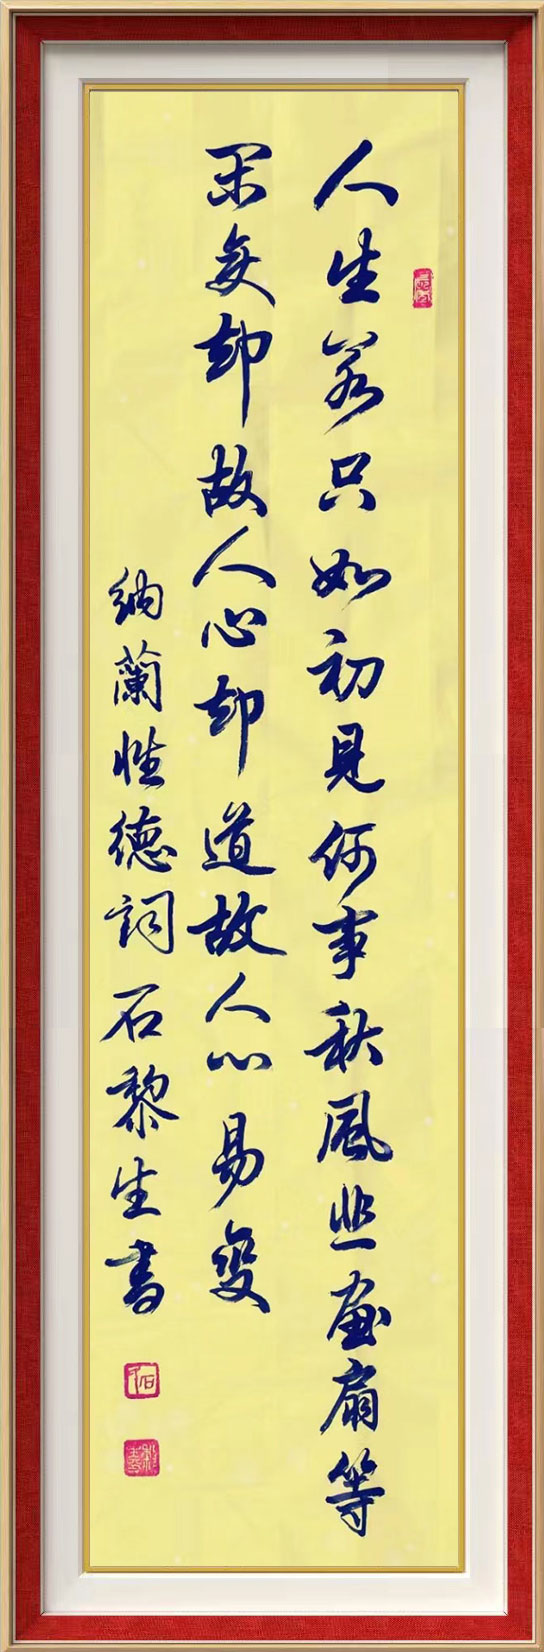 人生若只如初見何事秋風悲画扇等
閑变却故人心却道故人心易變
納蘭性德詞石黎生書